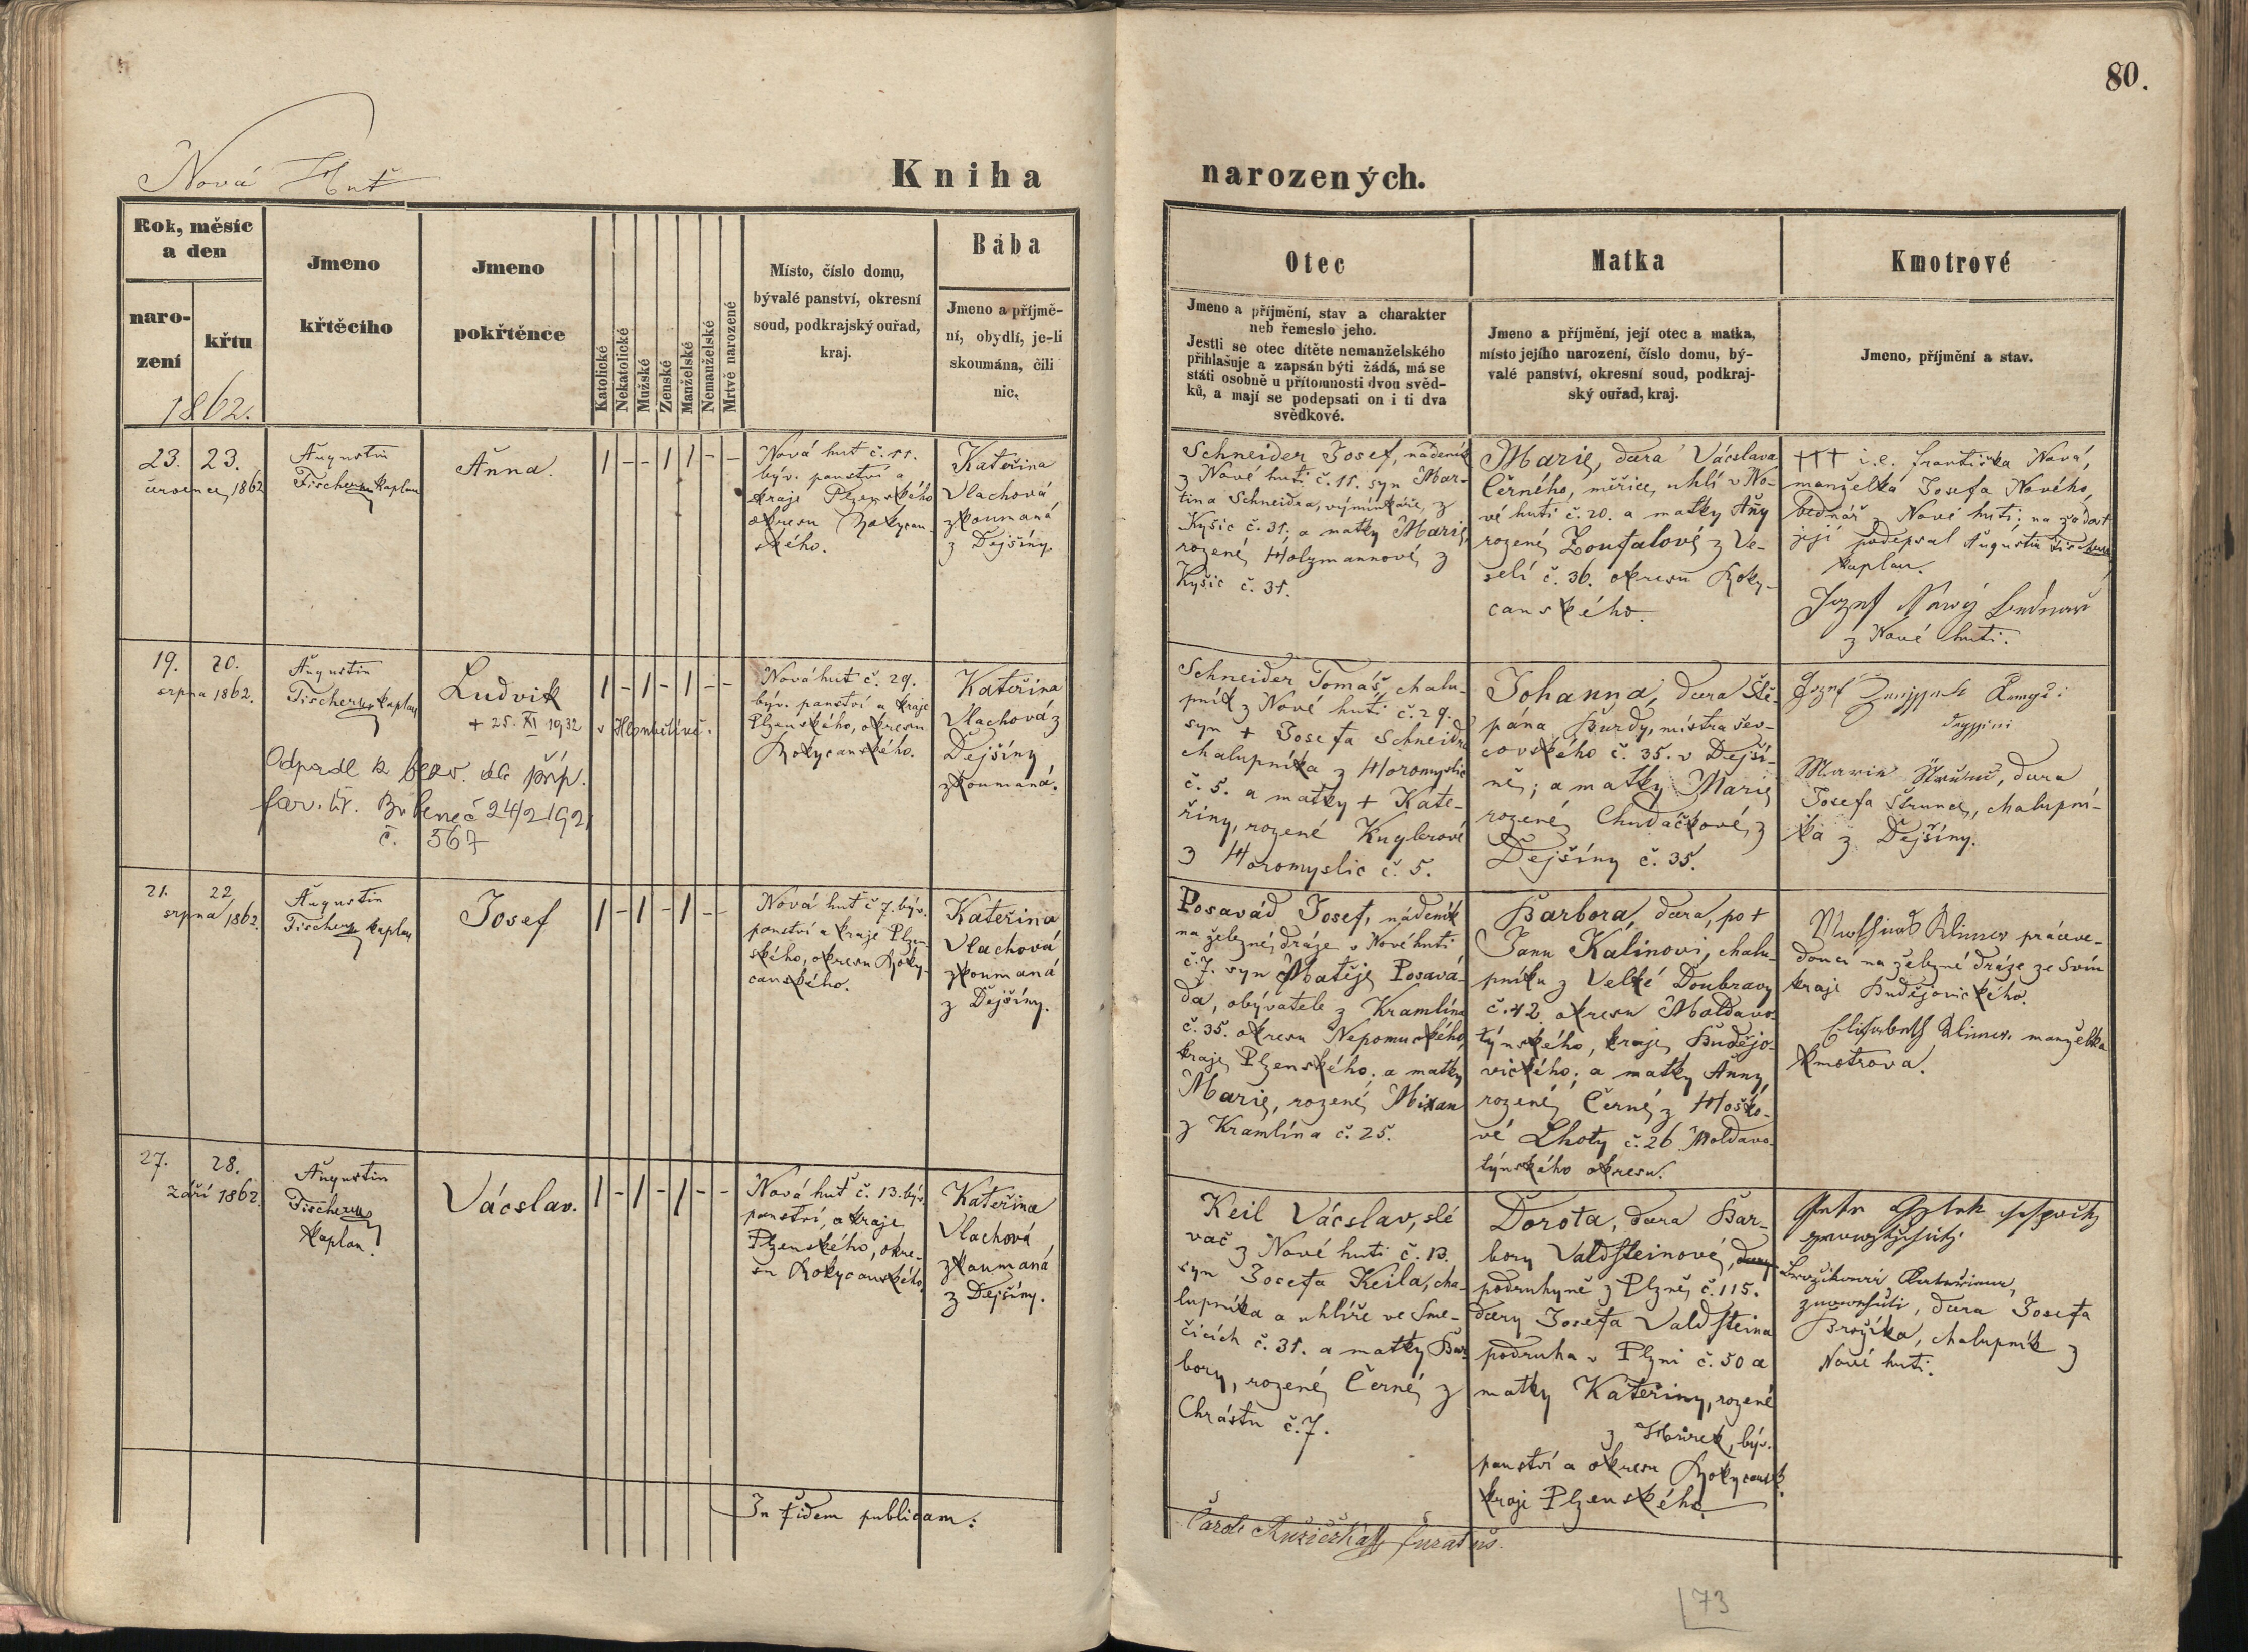 80.
Nová Huť
Kniha narozených.
Rok, měsíc
a den
naro-
zení
křtu
1862.
Jmeno
křtěcího
Jmeno
pokřtěnce
Katolické
Nekatolické
Mužské
Ženské
Manželské
Nemanželské
Mrtvě narozené
Místo, číslo domu,
bývalé panství, okresní
soud, podkrajský ouřad,
kraj.
Bába
Jmeno a příjmě-
ní, obydlí, je-li
skoumána, čili
nic.
Otec
Jmeno a příjmění, stav a charakter
neb řemeslo jeho.
Jestli se otec dítěte nemanželského
přihlašuje a zapsán býti žádá, má se
státi osobně u přítomnosti dvou svěd-
ků, a mají se podepsati on i ti dva
svědkové.
Matka
Jmeno a příjmění, její otec a matka,
místo jejího narození, číslo domu, bý-
valé panství, okresní soud, podkraj-
ský ouřad, kraj.
Kmotrové
Jmeno, příjmění a stav.
23. 23.
července 1862
Augustin
Fischer kaplan
Anna.
1 - - 1 1 - -
Nová huť č. 11.
býv. panství a
kraje Plzenského
okresu Rokycan-
ského.
Kateřina
Vlachová,
zkoumaná
z Dejšiny.
Schneider Josef, nádeník
z Nové huti č. 11. syn Mar-
tina Schneidra, výminkáře, z
Kyšic č. 31; a matky Marie,
rozené Holzmannové z
Kyšic č. 31.
Marie, dcera Václava
Černého, měřiče uhlí v No-
vé huti č. 20. a matky Añy
rozené Zoufalové z Ve-
selí č. 36. okresu Roky-
canského.
††† i.e. Františka Nová,
manželka Josefa Nového,
bednář z Nové huti; na žádost
její podepsal Augustin Fischer
kaplan.
Jozef Nowý Bednař
z Nové huti.
19. 20.
srpna 1862.
Augustin
Fischer kaplan
Ludvík
+ 25. XI 1932 v Hloubětíně.
Odpadl k bezv. dle příp.
far. úř. Bubeneč 24/2 1921
č. 567
1 - 1 - 1 - -
Nová huť č. 29.
býv. panství a kraje
Plzenského, okresu
Rokycanského.
Kateřina
Vlachová z
Dejšiny
zkoumaná.
Schneider Tomáš, chalu-
pník z Nové huti č. 29.
syn + Josefa Schneidra
chalupníka z Horomyslic
č. 5. a matky + Kate-
řiny, rozené Kuglerové
z Horomyslic č. 5.
Johanna, dcera Ště-
pána Burdy, mistra šev-
covského č. 35. v Dejši-
ně; a matky Marie
rozené Chudáčkové, z
Dejšiny č. 35.
Jozef
Marie Štrunc, dcera
Josefa Štrunce, chalupní-
ka z Dejšiny.
21. 22
srpna 1862.
Augustin
Fischer kaplan
Josef
1 - 1 - 1 - -
Nová huť č 7. býv.
panství a kraje Plzen-
ského, okresu Roky-
canského.
Kateřina
Vlachová
zkoumaná
z Dejšiny.
Posavád Josef, nádeník
na železné dráze v Nové huti
č. 7. syn Matěje Posavá-
da, obyvatele z Kramlína
č. 35. okresu Nepomuckého,
kraje Plzenského. a matky
Marie, rozené Mixan
z Kramlína č. 25.
Barbora, dcera, po +
Janu Kalinovi, chalu-
pníku z Velké Doubravy
č. 42. okresu Moldavo-
týnského, kraje Budějo-
vického; a matky Anny,
rozené Černé z Hoško-
vé Lhoty č. 26 Moldavo-
týnského okresu.
Mathias Klimes práceve-
doucí na železné dráze ze Svin
kraje Budějovického.
Elisabeth Klimes. manželka
kmotrova.
27. 28.
září 1862.
Augustin
Fischer
kaplan.
Václav.
1 - 1 - 1 - -
Nová huť č. 13. býv.
panství, a kraje
Plzenského, okre-
su Rokycanského.
Kateřina
Vlachová
zkoumaná
z Dejšiny.
Keil Václav, slé
vač z Nové huti č. 13.
syn Josefa Keila, cha-
lupníka a uhlíře ve Sme-
čicích č. 31. a matky Bar-
bory, rozené Černé z
Chrástu č. 7.
Dorota, dcera Bar-
bory Valdsteinové,
podruhyně z Plzně č. 115.
dcery Josefa Valdsteina
podruha v Plzni č. 50 a
matky Kateřiny, rozené
z Hůrek, býv.
panství a okresu Rokycansk.
kraje Plzenského.
Petr
Brožiková Kateřina,
dcera Josefa
Brožíka, chalupník z
Nové huti.
In fidem publicam:
Carol Růžička curatus.
73